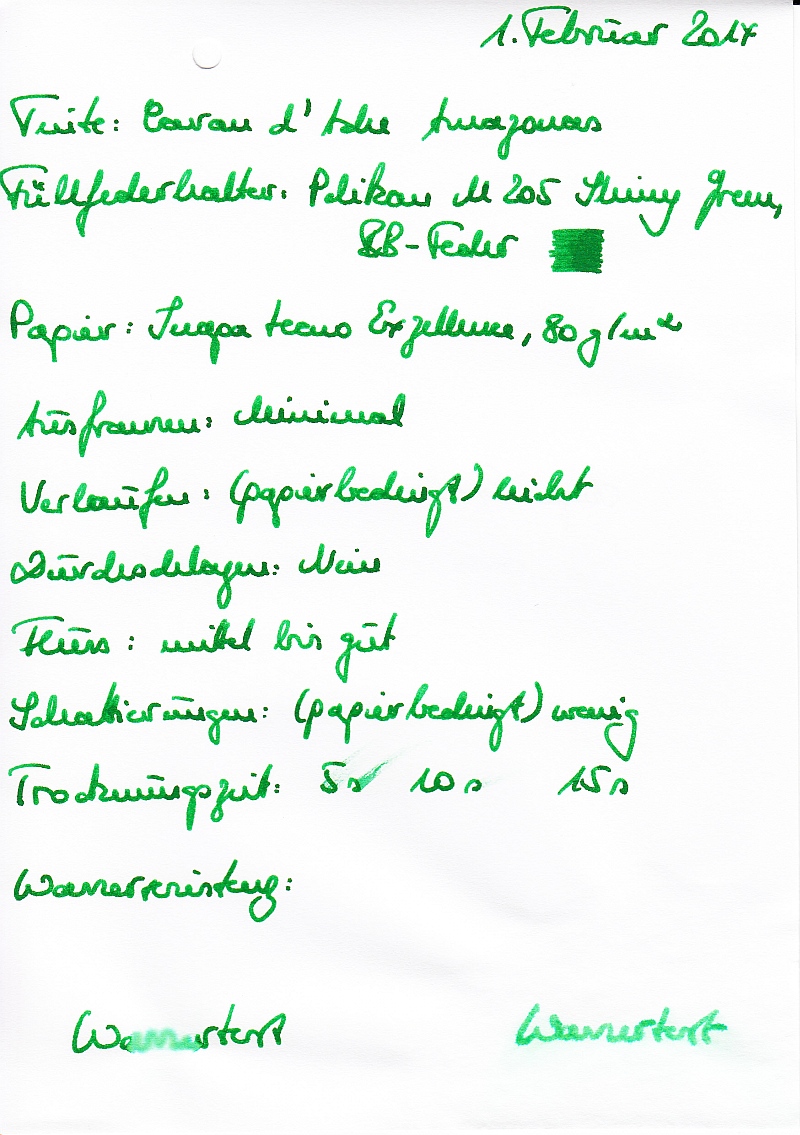 1. Februar 2017
Tinte: Caran d'Ache Amazonas
Füllfederhalter: Pelikan M 205 Shiny Green,
BB-Feder
Papier: Inapa tecno Exzellence, 80 g/m²
Ausfransen: Minimal
Verlaufen: (papierbedingt) leicht
Durchschlagen: Nein
Fluss: mittel bis gut
Schattierungen: (papierbedingt) wenig
Trocknungszeit: 5s 10s 15s
Wasserresistenz:
Wassertest Wassertest